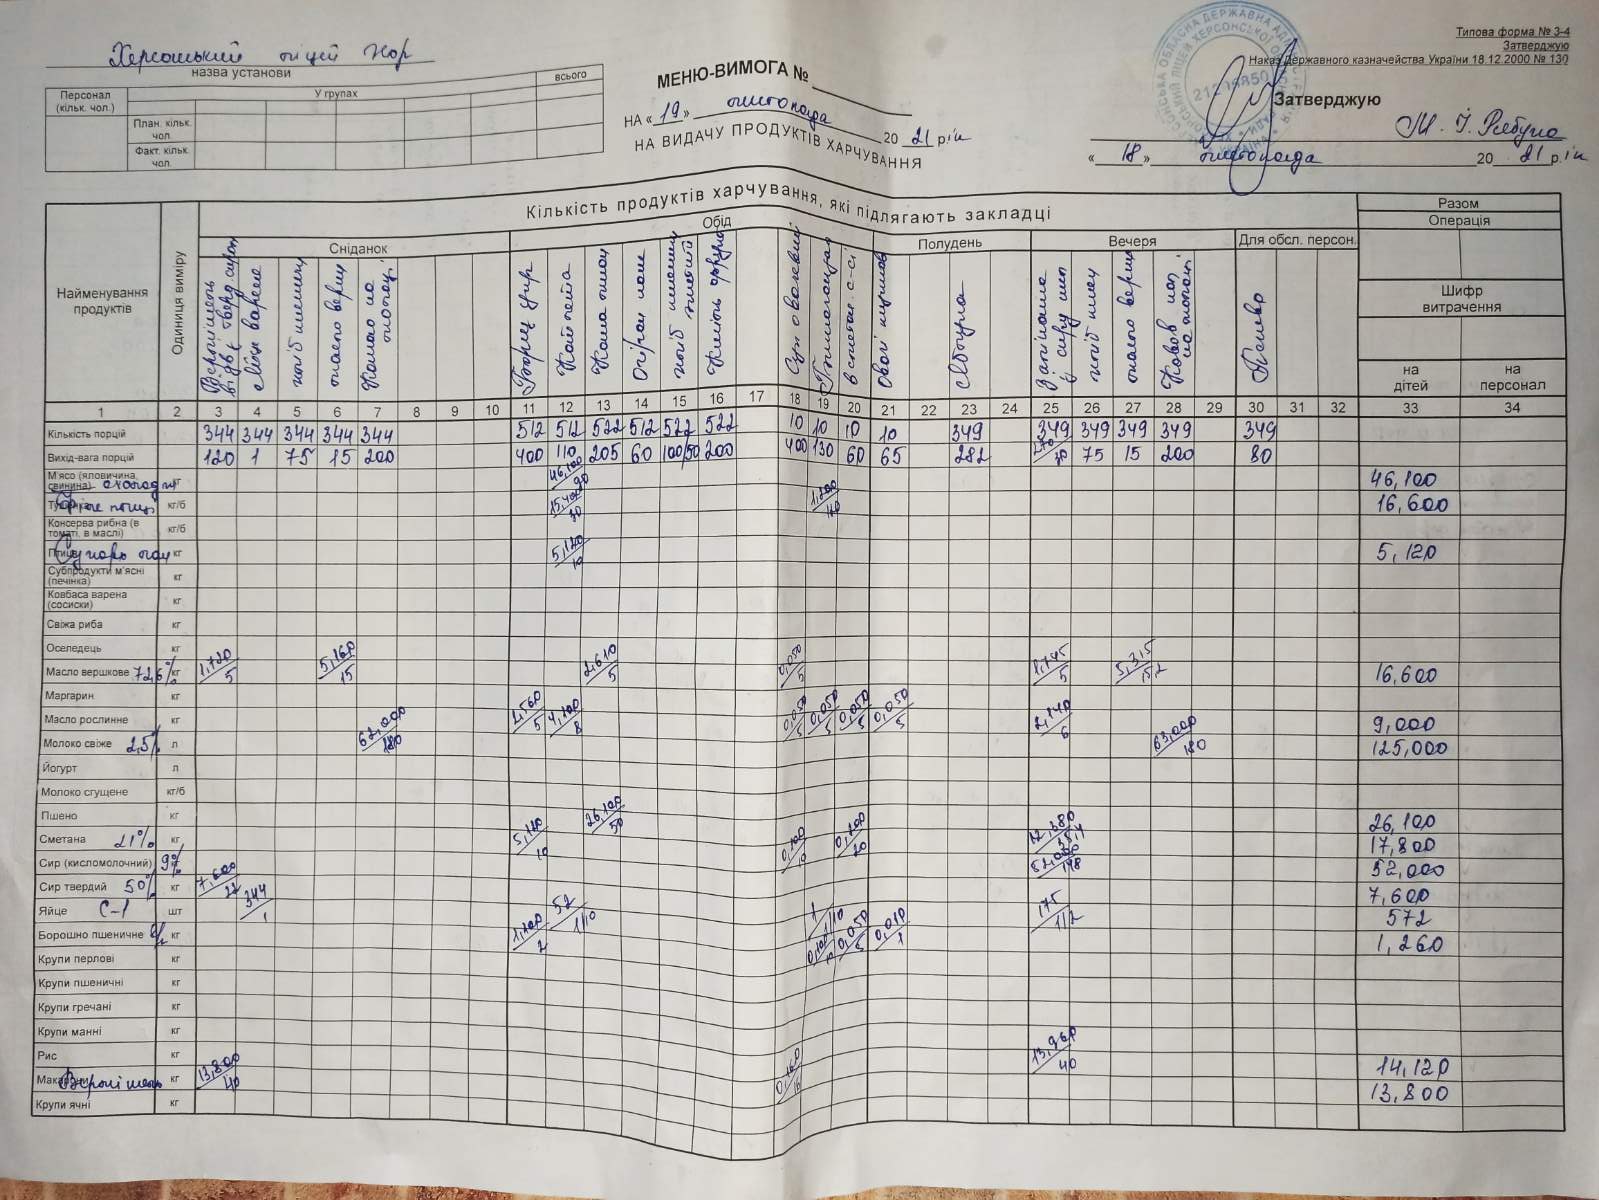 Типова форма № 3-4
Затверджую
Наказ Державного казначейства України 18.12.2000 № 130
Херсонський ліцей
назва установи
Персонал (кільк. чол.) У групах всього
План. кільк. чол.
Факт. кільк. чол.
МЕНЮ-ВИМОГА №
НА « 19 » листопада 20 21 рік
НА ВИДАЧУ ПРОДУКТІВ ХАРЧУВАННЯ
Затверджую
« 18 » листопада 20 21 рік
Найменування продуктів
Одиниця виміру
Кількість продуктів харчування, які підлягають закладці
Сніданок Обід Полудень Вечеря Для обсл. персон.
Разом
Операція
Шифр витрачення
на дітей на персонал
Вермішель відв. з тверд. сиром
Яйце варене
хліб пшенич
масло верш
Какао на молоці
Борщ укр
Котлета
Каша пшон
Огірок сол
Запіканка з сиру
хліб пшен
масло верш
на молоці
1 2 3 4 5 6 7 8 9 10 11 12 13 14 15 16 17 18 19 20 21 22 23 24 25 26 27 28 29 30 31 32 33 34
Кількість порцій 344 344 344 344 344 512 512 522 512 522 522 10 10 10 10 349 349 349 349 349 349
Вихід-вага порцій 120 1 75 15 200 400 110 205 60 100/50 200 400 130 60 65 282 170/30 75 15 200 80
М'ясо (яловичина, свинина) охолодж кг 46,100/90 46,100
Філе птиці кг/б 15,400/30 1,200/120 16,600
Консерва рибна (в томаті, в маслі) кг/б
Птиця Сухарь пан кг 5,120/10 5,120
Субпродукти м'ясні (печінка) кг
Ковбаса варена (сосиски) кг
Свіжа риба кг
Оселедець кг
Масло вершкове 72,6% кг 1,720/5 5,160/15 2,610/5 0,050/5 1,745/5 5,315/15,2 16,600
Маргарин кг
Масло рослинне кг 2,560/5 4,100/8 0,050/5 0,050/5 0,050/5 0,050/5 2,140/6 9,000
Молоко свіже 2,5% л 62,000/180 63,000/180 125,000
Йогурт л
Молоко сгущене кг/б
Пшено кг 26,100/50 26,100
Сметана 21% кг 5,120/10 0,100/10 0,200/20 12,380/35,4 17,800
Сир (кисломолочний) 9% кг 52,000/148 52,000
Сир твердий 50% кг 7,600/22 7,600
Яйце С-1 шт 344/1 52 1/10 1 1/10 175 1/2 572
Борошно пшеничне кг 1,100/2 0,100/10 0,050/5 0,010/1 1,260
Крупи перлові кг
Крупи пшеничні кг
Крупи гречані кг
Крупи манні кг
Рис кг 0,160/16 13,960/40 14,120
Макарони Вермішель кг 13,800/40 13,800
Крупи ячні кг